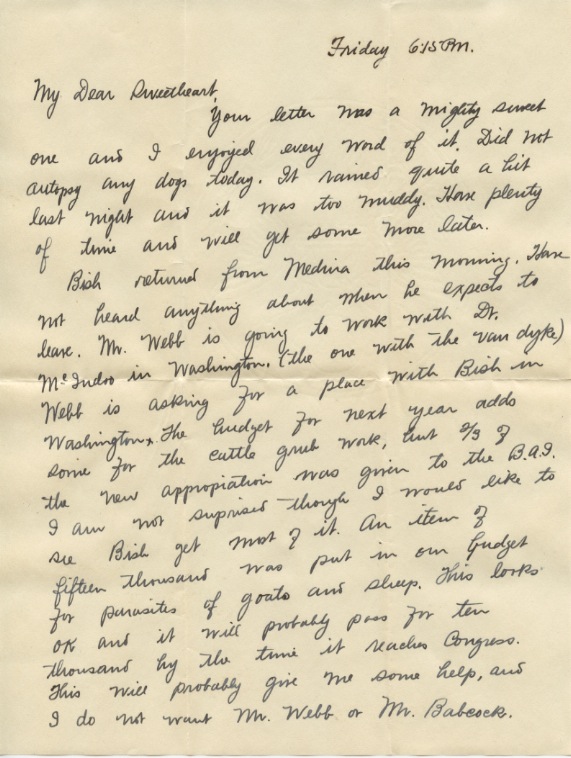 Friday 6:15 PM.
My Dear Sweetheart,
Your letter was a mighty sweet
one and I enjoyed every word of it. Did not
autopsy any dogs today. It rained quite a bit
last night and it was too muddy. Have plenty
of time and will get some more later.
Bish returned from Medina this morning. Have
not heard anything about when he expects to
leave. Mr. Webb is going to work with Dr.
McIndoo in Washington. (the one with the van dyke)
Webb is asking for a place with Bish in
Washington. The budget for next year adds
some for the cattle grub work, but 2/3 of
the new appropiation was given to the B.A.I.
I am not suprised though I would like to
see Bish get most of it. An item of
fifteen thousand was put in our budget
for parasites of goats and sheep. This looks
OK and it will probably pass for ten
thousand by the time it reaches Congress.
This will probably give me some help, and
I do not want Mr. Webb or Mr. Babcock.